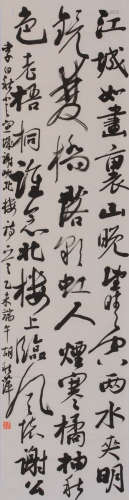 江城如畫裏山晚望晴空两水夾明
鏡雙橋落彩虹人煙寒橘柚秋
色老梧桐誰念北樓上臨風懷謝公
李白秋登宣城謝朓北樓詩乙未端午胡秋萍